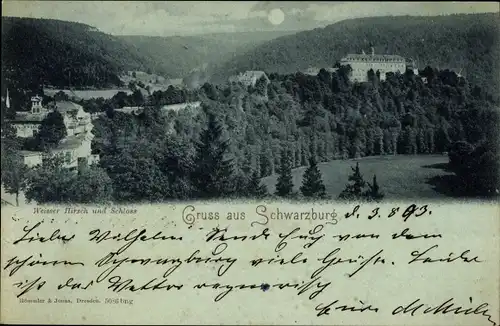 Weisser Hirsch und Schloss
Gruss aus Schwarzburg
d. 3. 8 93.
Liebe Wilhelm Sende Euch von dem
schönen Schwarzburg viele Grüsse. Leider
ist das Wetter regnerisch
Römmler & Jonas, Dresden.
Eure